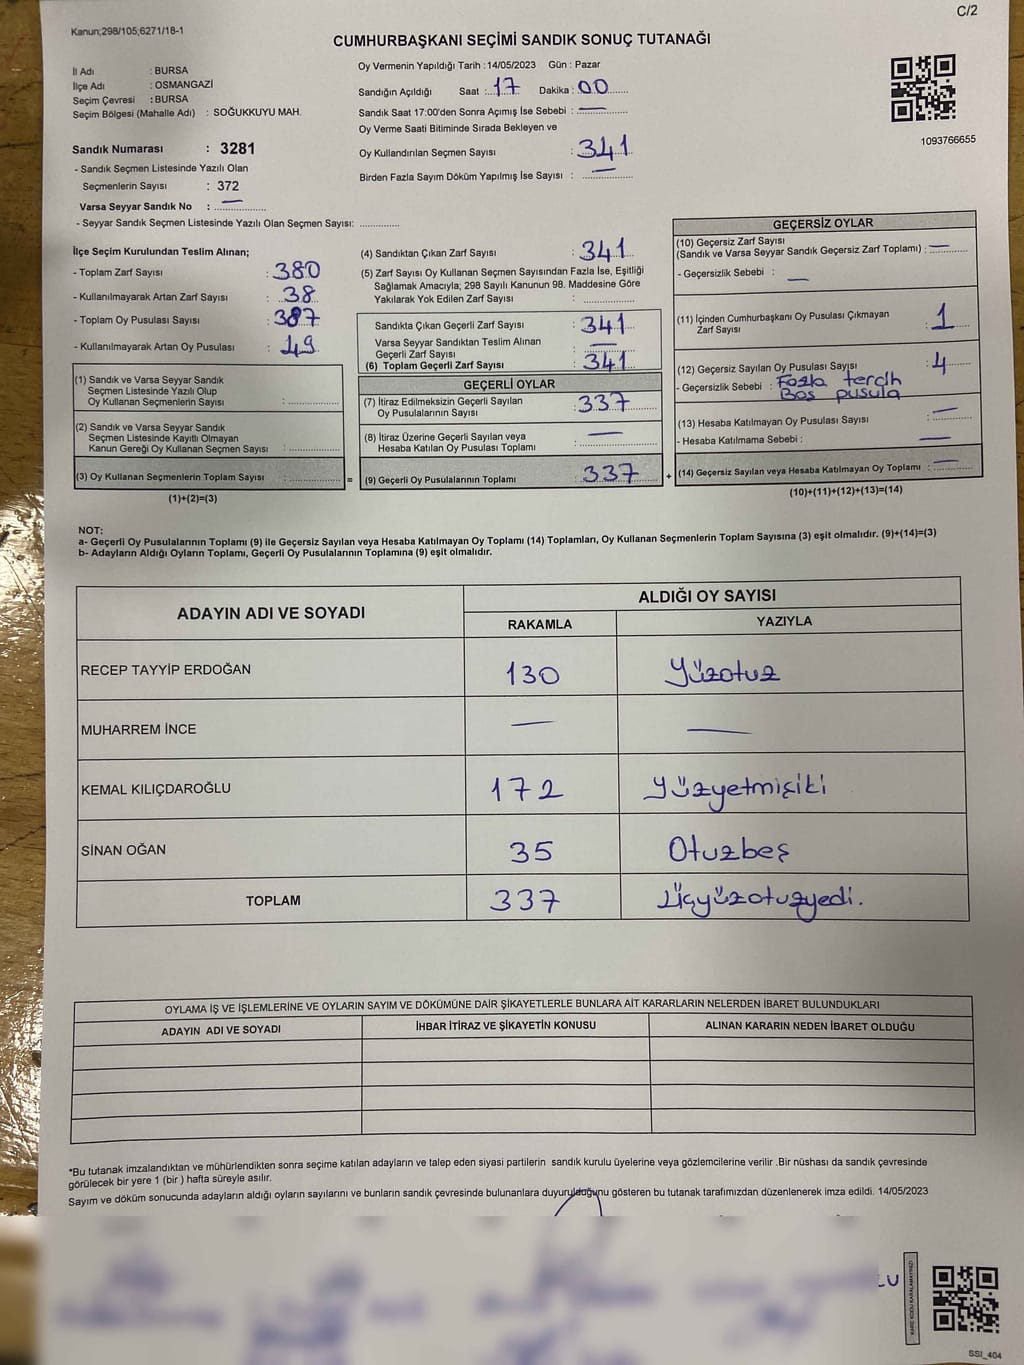 C/2
Kanun;298/105;6271/18-1
CUMHURBAŞKANI SEÇİMİ SANDIK SONUÇ TUTANAĞI
İl Adı : BURSA
İlçe Adı : OSMANGAZİ
Seçim Çevresi : BURSA
Seçim Bölgesi (Mahalle Adı) : SOĞUKKUYU MAH.
Sandık Numarası : 3281
- Sandık Seçmen Listesinde Yazılı Olan
Seçmenlerin Sayısı : 372
Varsa Seyyar Sandık No : —
- Seyyar Sandık Seçmen Listesinde Yazılı Olan Seçmen Sayısı: ..............
Oy Vermenin Yapıldığı Tarih : 14/05/2023 Gün : Pazar
Sandığın Açıldığı Saat : 17 Dakika : 00
Sandık Saat 17:00'den Sonra Açımış İse Sebebi : —
Oy Verme Saati Bitiminde Sırada Bekleyen ve
Oy Kullandırılan Seçmen Sayısı : 341
Birden Fazla Sayım Döküm Yapılmış İse Sayısı : —
1093766655
İlçe Seçim Kurulundan Teslim Alınan;
- Toplam Zarf Sayısı : 380
- Kullanılmayarak Artan Zarf Sayısı : 38
- Toplam Oy Pusulası Sayısı : 387
- Kullanılmayarak Artan Oy Pusulası : 49
(1) Sandık ve Varsa Seyyar Sandık
Seçmen Listesinde Yazılı Olup
Oy Kullanan Seçmenlerin Sayısı : ..............
(2) Sandık ve Varsa Seyyar Sandık
Seçmen Listesinde Kayıtlı Olmayan
Kanun Gereği Oy Kullanan Seçmen Sayısı : ..............
(3) Oy Kullanan Seçmenlerin Toplam Sayısı : ..............
(1)+(2)=(3)
=
(4) Sandıktan Çıkan Zarf Sayısı : 341
(5) Zarf Sayısı Oy Kullanan Seçmen Sayısından Fazla İse, Eşitliği
Sağlamak Amacıyla; 298 Sayılı Kanunun 98. Maddesine Göre
Yakılarak Yok Edilen Zarf Sayısı : ..............
Sandıkta Çıkan Geçerli Zarf Sayısı : 341
Varsa Seyyar Sandıktan Teslim Alınan
Geçerli Zarf Sayısı : —
(6) Toplam Geçerli Zarf Sayısı : 341
GEÇERLİ OYLAR
(7) İtiraz Edilmeksizin Geçerli Sayılan
Oy Pusulalarının Sayısı : 337
(8) İtiraz Üzerine Geçerli Sayılan veya
Hesaba Katılan Oy Pusulası Toplamı : —
(9) Geçerli Oy Pusulalarının Toplamı : 337
+
GEÇERSİZ OYLAR
(10) Geçersiz Zarf Sayısı
(Sandık ve Varsa Seyyar Sandık Geçersiz Zarf Toplamı) : —
- Geçersizlik Sebebi : —
(11) İçinden Cumhurbaşkanı Oy Pusulası Çıkmayan
Zarf Sayısı : 1
(12) Geçersiz Sayılan Oy Pusulası Sayısı : 4
- Geçersizlik Sebebi : Fazla tercih
Boş pusula
(13) Hesaba Katılmayan Oy Pusulası Sayısı : —
- Hesaba Katılmama Sebebi : —
(14) Geçersiz Sayılan veya Hesaba Katılmayan Oy Toplamı : —
(10)+(11)+(12)+(13)=(14)
NOT:
a- Geçerli Oy Pusulalarının Toplamı (9) ile Geçersiz Sayılan veya Hesaba Katılmayan Oy Toplamı (14) Toplamları, Oy Kullanan Seçmenlerin Toplam Sayısına (3) eşit olmalıdır. (9)+(14)=(3)
b- Adayların Aldığı Oyların Toplamı, Geçerli Oy Pusulalarının Toplamına (9) eşit olmalıdır.
ADAYIN ADI VE SOYADI ALDIĞI OY SAYISI
RAKAMLA YAZIYLA
RECEP TAYYİP ERDOĞAN 130 Yüzotuz
MUHARREM İNCE — —
KEMAL KILIÇDAROĞLU 172 Yüzyetmişiki
SİNAN OĞAN 35 Otuzbeş
TOPLAM 337 Üçyüzotuzyedi.
OYLAMA İŞ VE İŞLEMLERİNE VE OYLARIN SAYIM VE DÖKÜMÜNE DAİR ŞİKAYETLERLE BUNLARA AİT KARARLARIN NELERDEN İBARET BULUNDUKLARI
ADAYIN ADI VE SOYADI İHBAR İTİRAZ VE ŞİKAYETİN KONUSU ALINAN KARARIN NEDEN İBARET OLDUĞU
*Bu tutanak imzalandıktan ve mühürlendikten sonra seçime katılan adayların ve talep eden siyasi partilerin sandık kurulu üyelerine veya gözlemcilerine verilir .Bir nüshası da sandık çevresinde
görülecek bir yere 1 (bir ) hafta süreyle asılır.
Sayım ve döküm sonucunda adayların aldığı oyların sayılarını ve bunların sandık çevresinde bulunanlara duyurulduğunu gösteren bu tutanak tarafımızdan düzenlenerek imza edildi. 14/05/2023
LU
KARE KODU KARALAMAYINIZ!
SSI_404